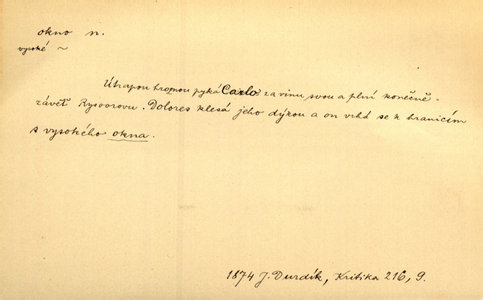 okno n.
vysoké ~
Útrapou hroznou pyká Carlo za vinu svou a plní konečně
závěť Rysoorovu. Dolores klesá jeho dýkou a on vrhá se k hranicím
s vysokého okna.
1874 J. Durdík, Kritika 216, 9.